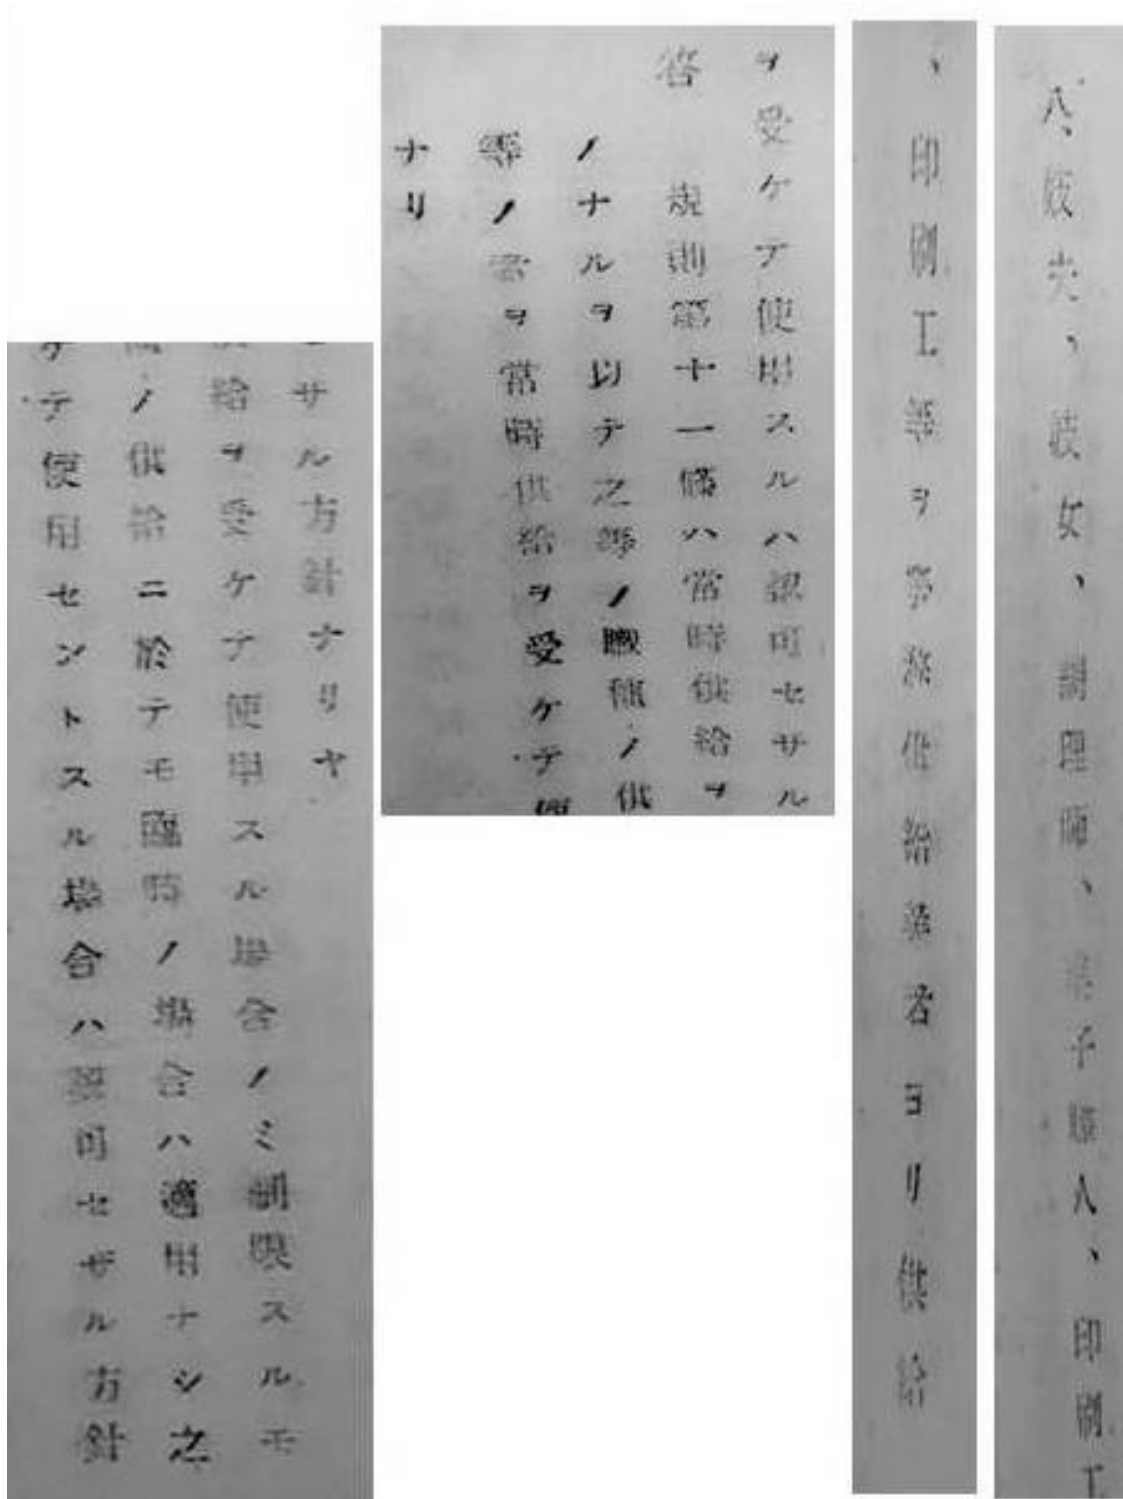 八、妓夫、妓女、調理師、菓子職人、印刷工
、印刷工等ヲ勞務供給業者ヨリ供給
ヲ受ケテ使用スルハ認可セサル
答　規則第十一條ハ常時供給ヲ
ノナルヲ以テ之等ノ職種ノ供
等ノ者ヲ常時供給ヲ受ケテ使
ナリ
サル方針ナリヤ
給ヲ受ケテ使用スル場合ノミ制限スルモ
ノ供給ニ於テモ臨時ノ場合ハ適用ナシ之
ケテ使用セントスル場合ハ認可セザル方針